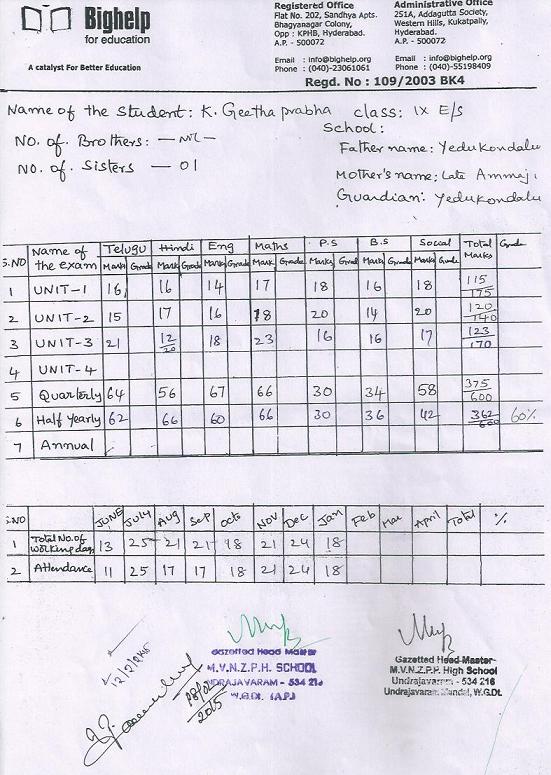 Bighelp
for education
A catalyst For Better Education
Registered Office
Flat No. 202, Sandhya Apts.
Bhagyanagar Colony,
Opp : KPHB, Hyderabad.
A.P. - 500072
Email : info@bighelp.org
Phone : (040)-23061061
Administrative Office
251A, Addagutta Society,
Western Hills, Kukatpally,
Hyderabad.
A.P. - 500072
Email : info@bighelp.org
Phone : (040)-55198409
Regd. No : 109/2003 BK4
Name of the Student: K. Geetha prabha class: IX E/S
School:
NO. of. Brothers: - NIL -
Father name: Yedukondalu
NO. of. Sisters - 01
Mother's name: Late Ammaji
Guardian: Yedukondalu
S.NO Name of the exam Telugu Hindi Eng Maths P.S B.S Social Total Marks Grade
Marks Grade Marks Grade Marks Grade Marks Grade Marks Grade Marks Grade Marks Grade
1 UNIT-1 16 16 14 17 18 16 18 115/175
2 UNIT-2 15 17 16 18 20 14 20 120/140
3 UNIT-3 21 12/20 18 23 16 16 17 123/170
4 UNIT-4
5 Quarterly 64 56 67 66 30 34 58 375/600
6 Half Yearly 62 66 60 66 30 36 42 362/600 60%
7 Annual
S.NO JUNE JULY Aug Sep Octo Nov Dec Jan Feb Mar April Total %
1 Total No. of working days 13 25 21 21 18 21 24 18
2 Attendance 11 25 17 17 18 21 24 18
Gazetted Head Master
M.V.N.Z.P.H. SCHOOL
UNDRAJAVARAM - 534 216
W.G.Dt. (A.P.)
Gazetted Head Master
M.V.N.Z.P.P. High School
Undrajavaram - 534 216
Undrajavaram Mandal, W.G.Dt.
12/2/2015
2015